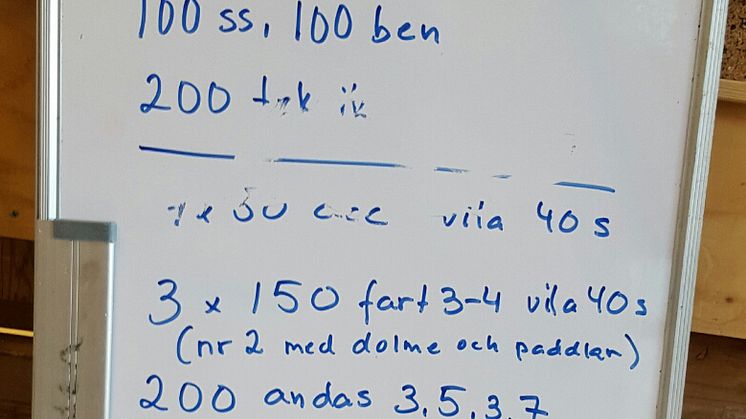 100 ss, 100 ben
200
50 vila 40 s
3 x 150 fart 3-4 vila 40 s
(nr 2 med dolme och paddlar)
200 andas 3, 5, 3, 7